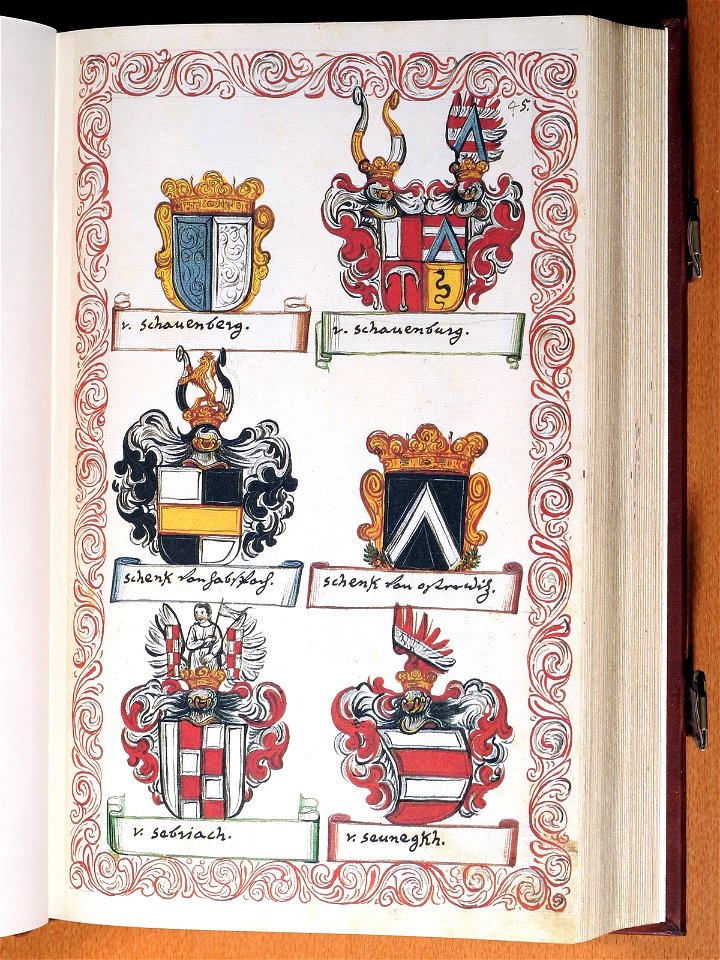 45.
v. schauenberg.
v. schauenburg.
schenk von habspach.
schenk von osterwiz.
v. sebriach.
v. seunegkh.